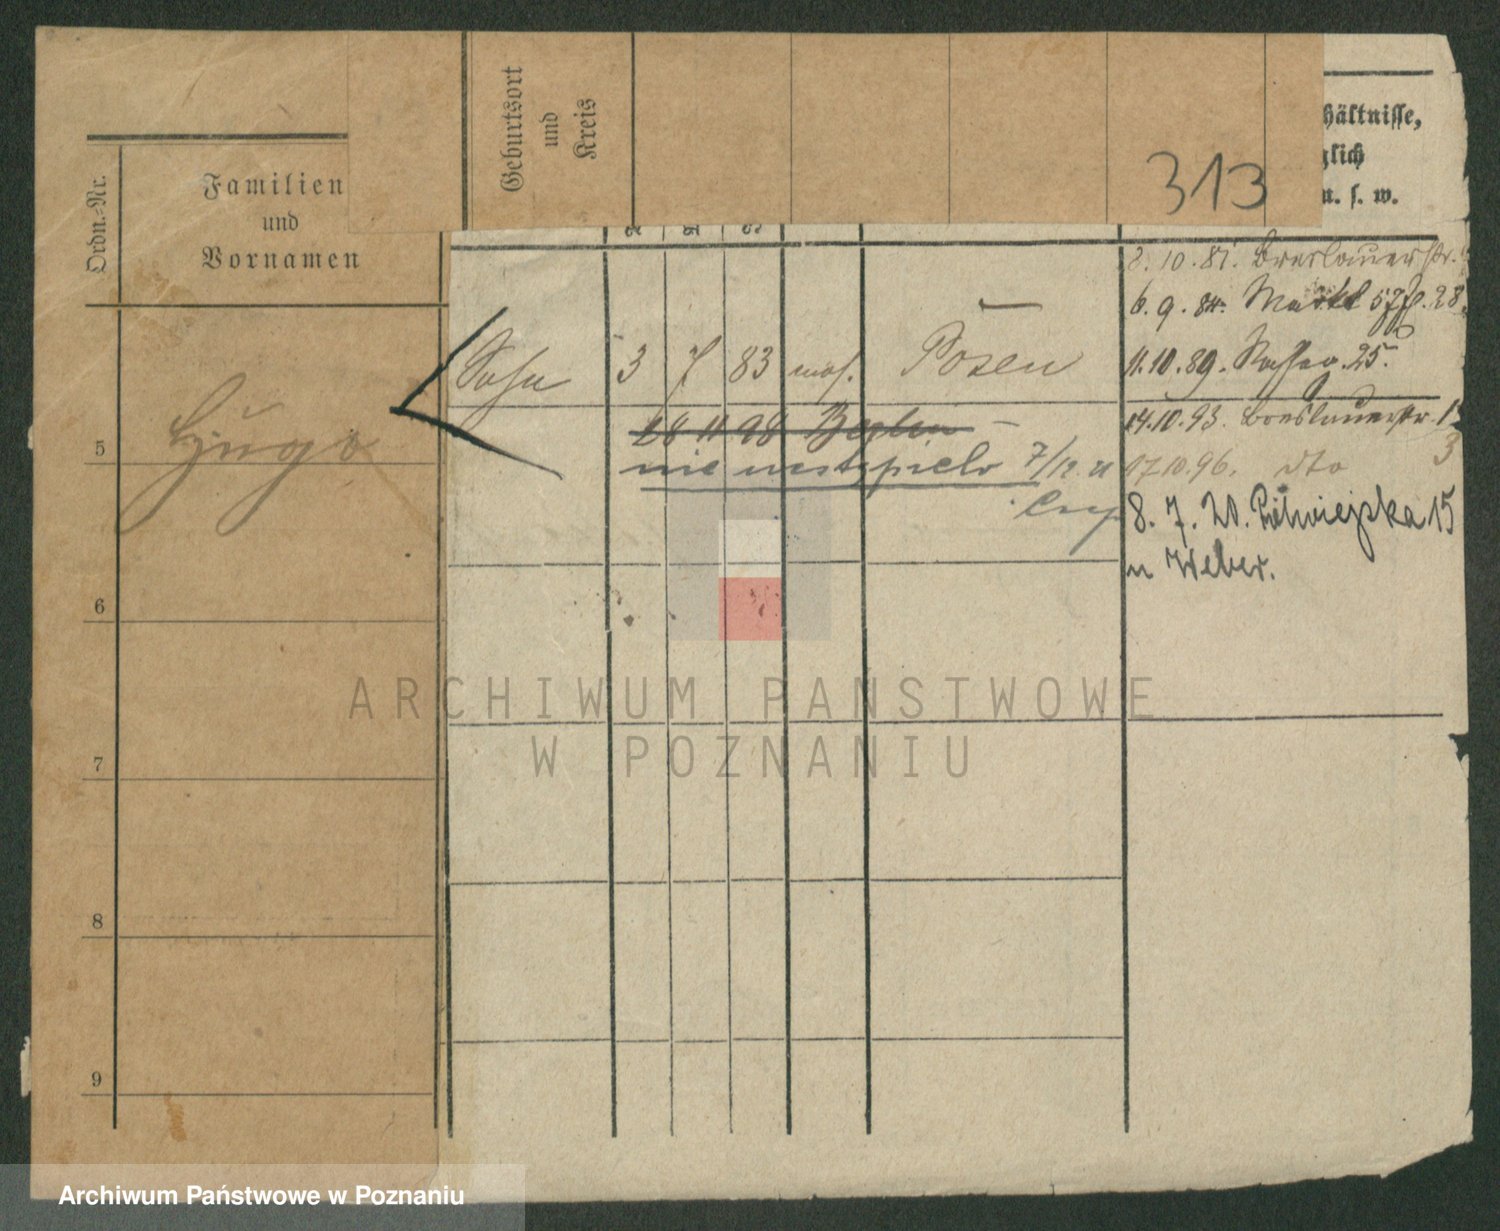 Geburtsort
und
Kreis
313
hältnisse,
glich
u. s. w.
Ordn.=Nr.
Familien
und
Vornamen
8. 10. 81. Breslauerstr.
6. 9. 84. Markt 57 28
Sohn 3 7 83 mos. Posen
11. 10. 89. 25.
28 11 98 Berlin
14. 10. 93. Breslauerstr. 13
Hugo
5
nie 7/12 21
17 10. 96. dto 3
8. 7. 20. Półwiejska 15
u Weber.
6
7
8
9
ARCHIWUM PAŃSTWOWE
W POZNANIU
Archiwum Państwowe w Poznaniu